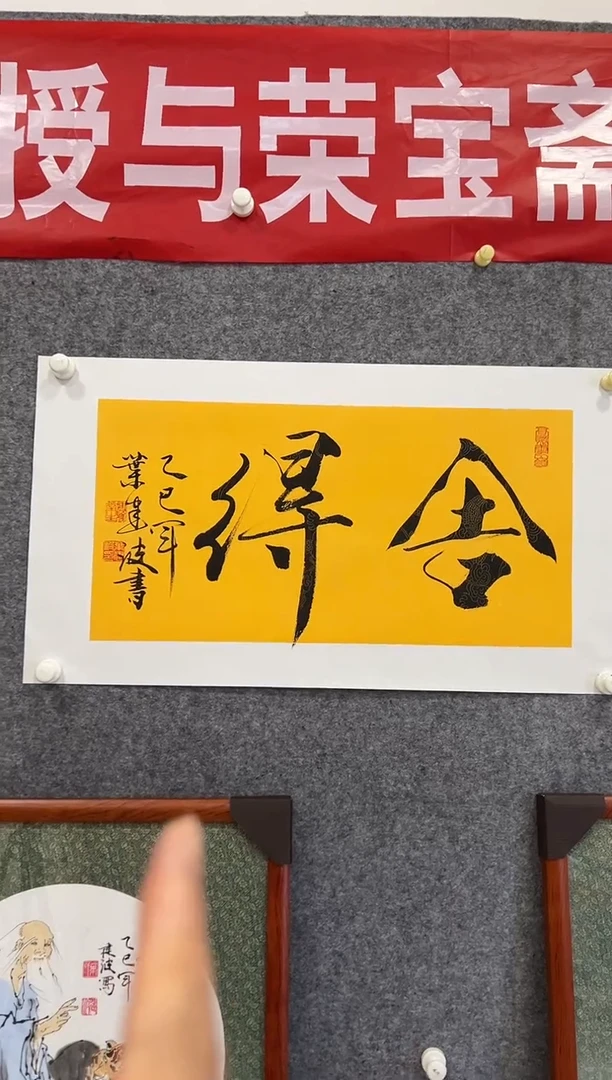 授与荣宝斋
舍得
乙巳年
叶建波书
乙巳年
建波写